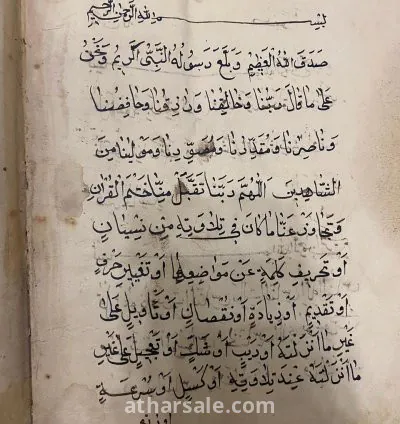 بسم الله الرحمن الرحيم
صدق الله العظيم وبلغ رسوله النبي الكريم ونحن
على ما قال ربنا وخالقنا ورازقنا وحافظنا
وناصرنا ومقدرنا ومصورنا ومولينا من
الشاهدين اللهم ربنا تقبل منا ختم القران
وتجاوز عنا ما كان في تلاوته من نسيان
او تحريف كلمة عن مواضعها او تغيير حرف
او تقديم او زيادة او نقصان او تاويل على
غير ما انزلته او ريب او شك او تعجيل على غير
ما انزلته عند تلاوته او كسل او سرعة
atharsale.com